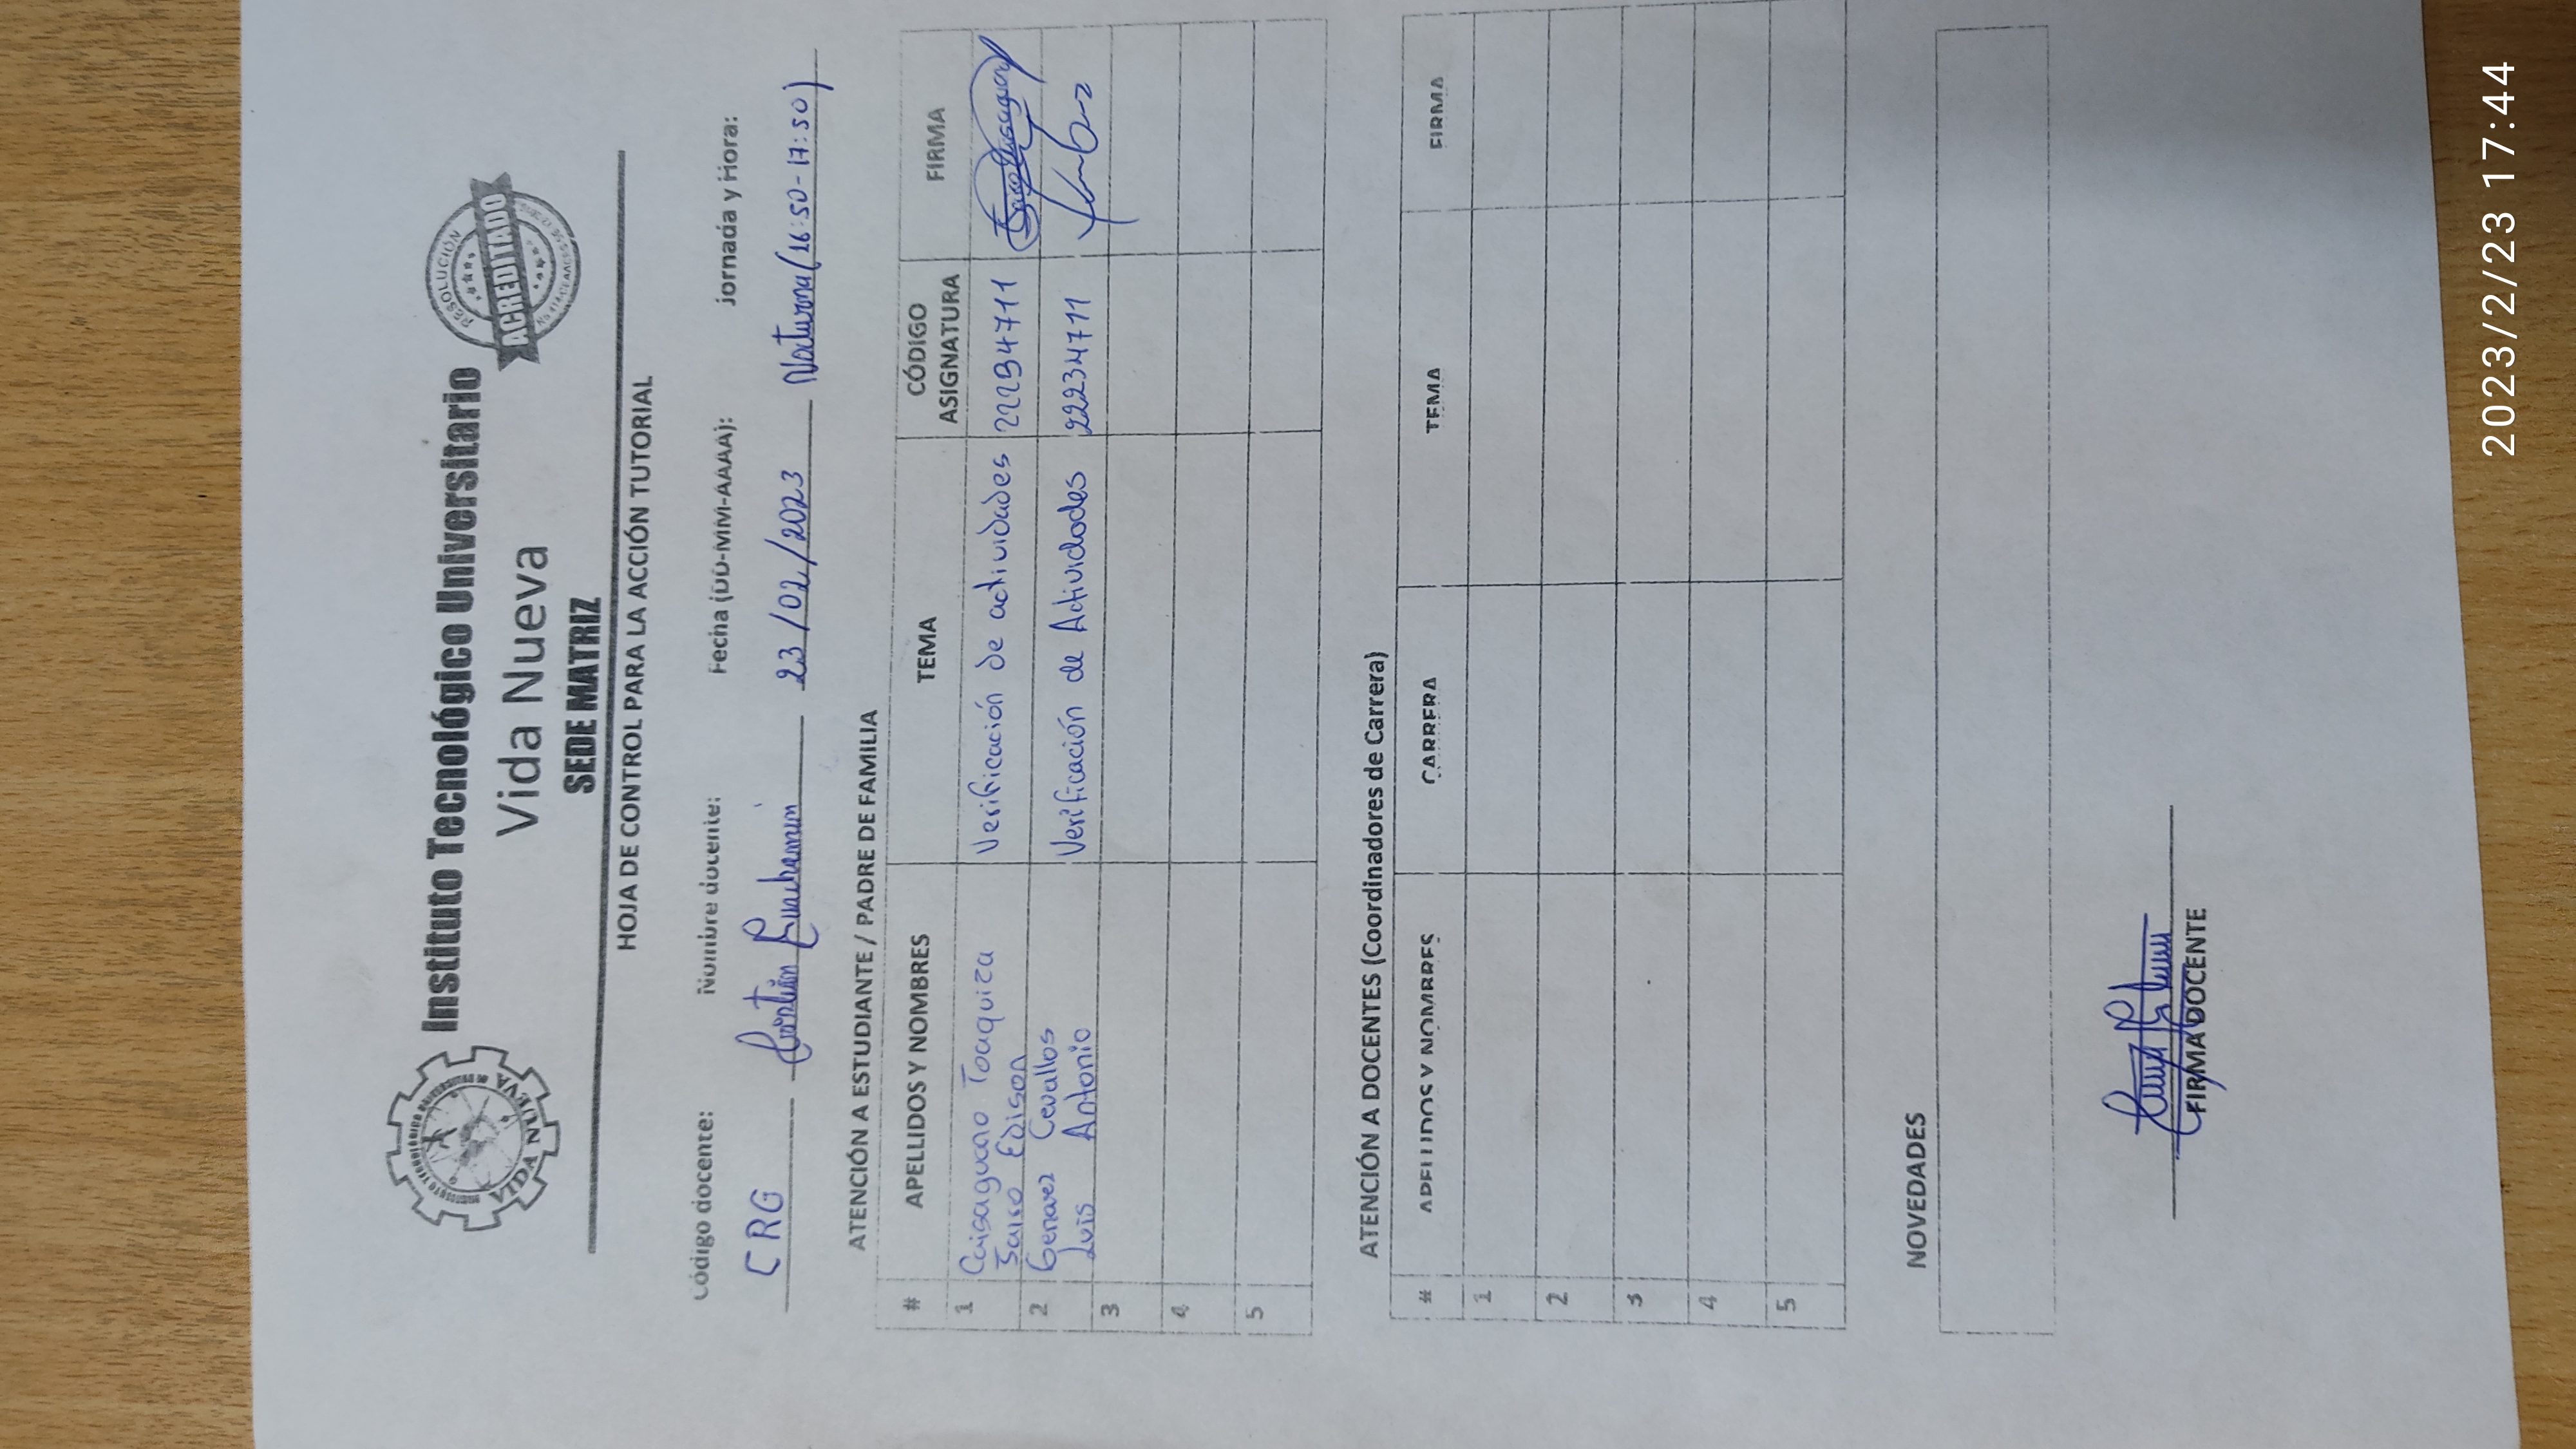 INSTITUTO TECNOLÓGICO UNIVERSITARIO
VIDA NUEVA
Instituto Tecnológico Universitario
Vida Nueva
SEDE MATRIZ
RESOLUCIÓN
ACREDITADO
HOJA DE CONTROL PARA LA ACCIÓN TUTORIAL
Código docente: Nombre docente: Fecha (DD-MM-AAAA): Jornada y Hora:
CRG Cristian Guachamin 23/02/2023 Nocturna (16:50-17:50)
ATENCIÓN A ESTUDIANTE / PADRE DE FAMILIA
# APELLIDOS Y NOMBRES TEMA CÓDIGO ASIGNATURA FIRMA
1 Caisaguano Toaquiza Verificación de actividades 22294711
Jairo Edison
2 Genavez Cevallos
Luis Antonio Verificación de Actividades 22234711
3
4
5
ATENCIÓN A DOCENTES (Coordinadores de Carrera)
# APELLIDOS Y NOMBRES CARRERA TEMA FIRMA
1
2
3
4
5
NOVEDADES
FIRMA DOCENTE
2023/2/23 17:44